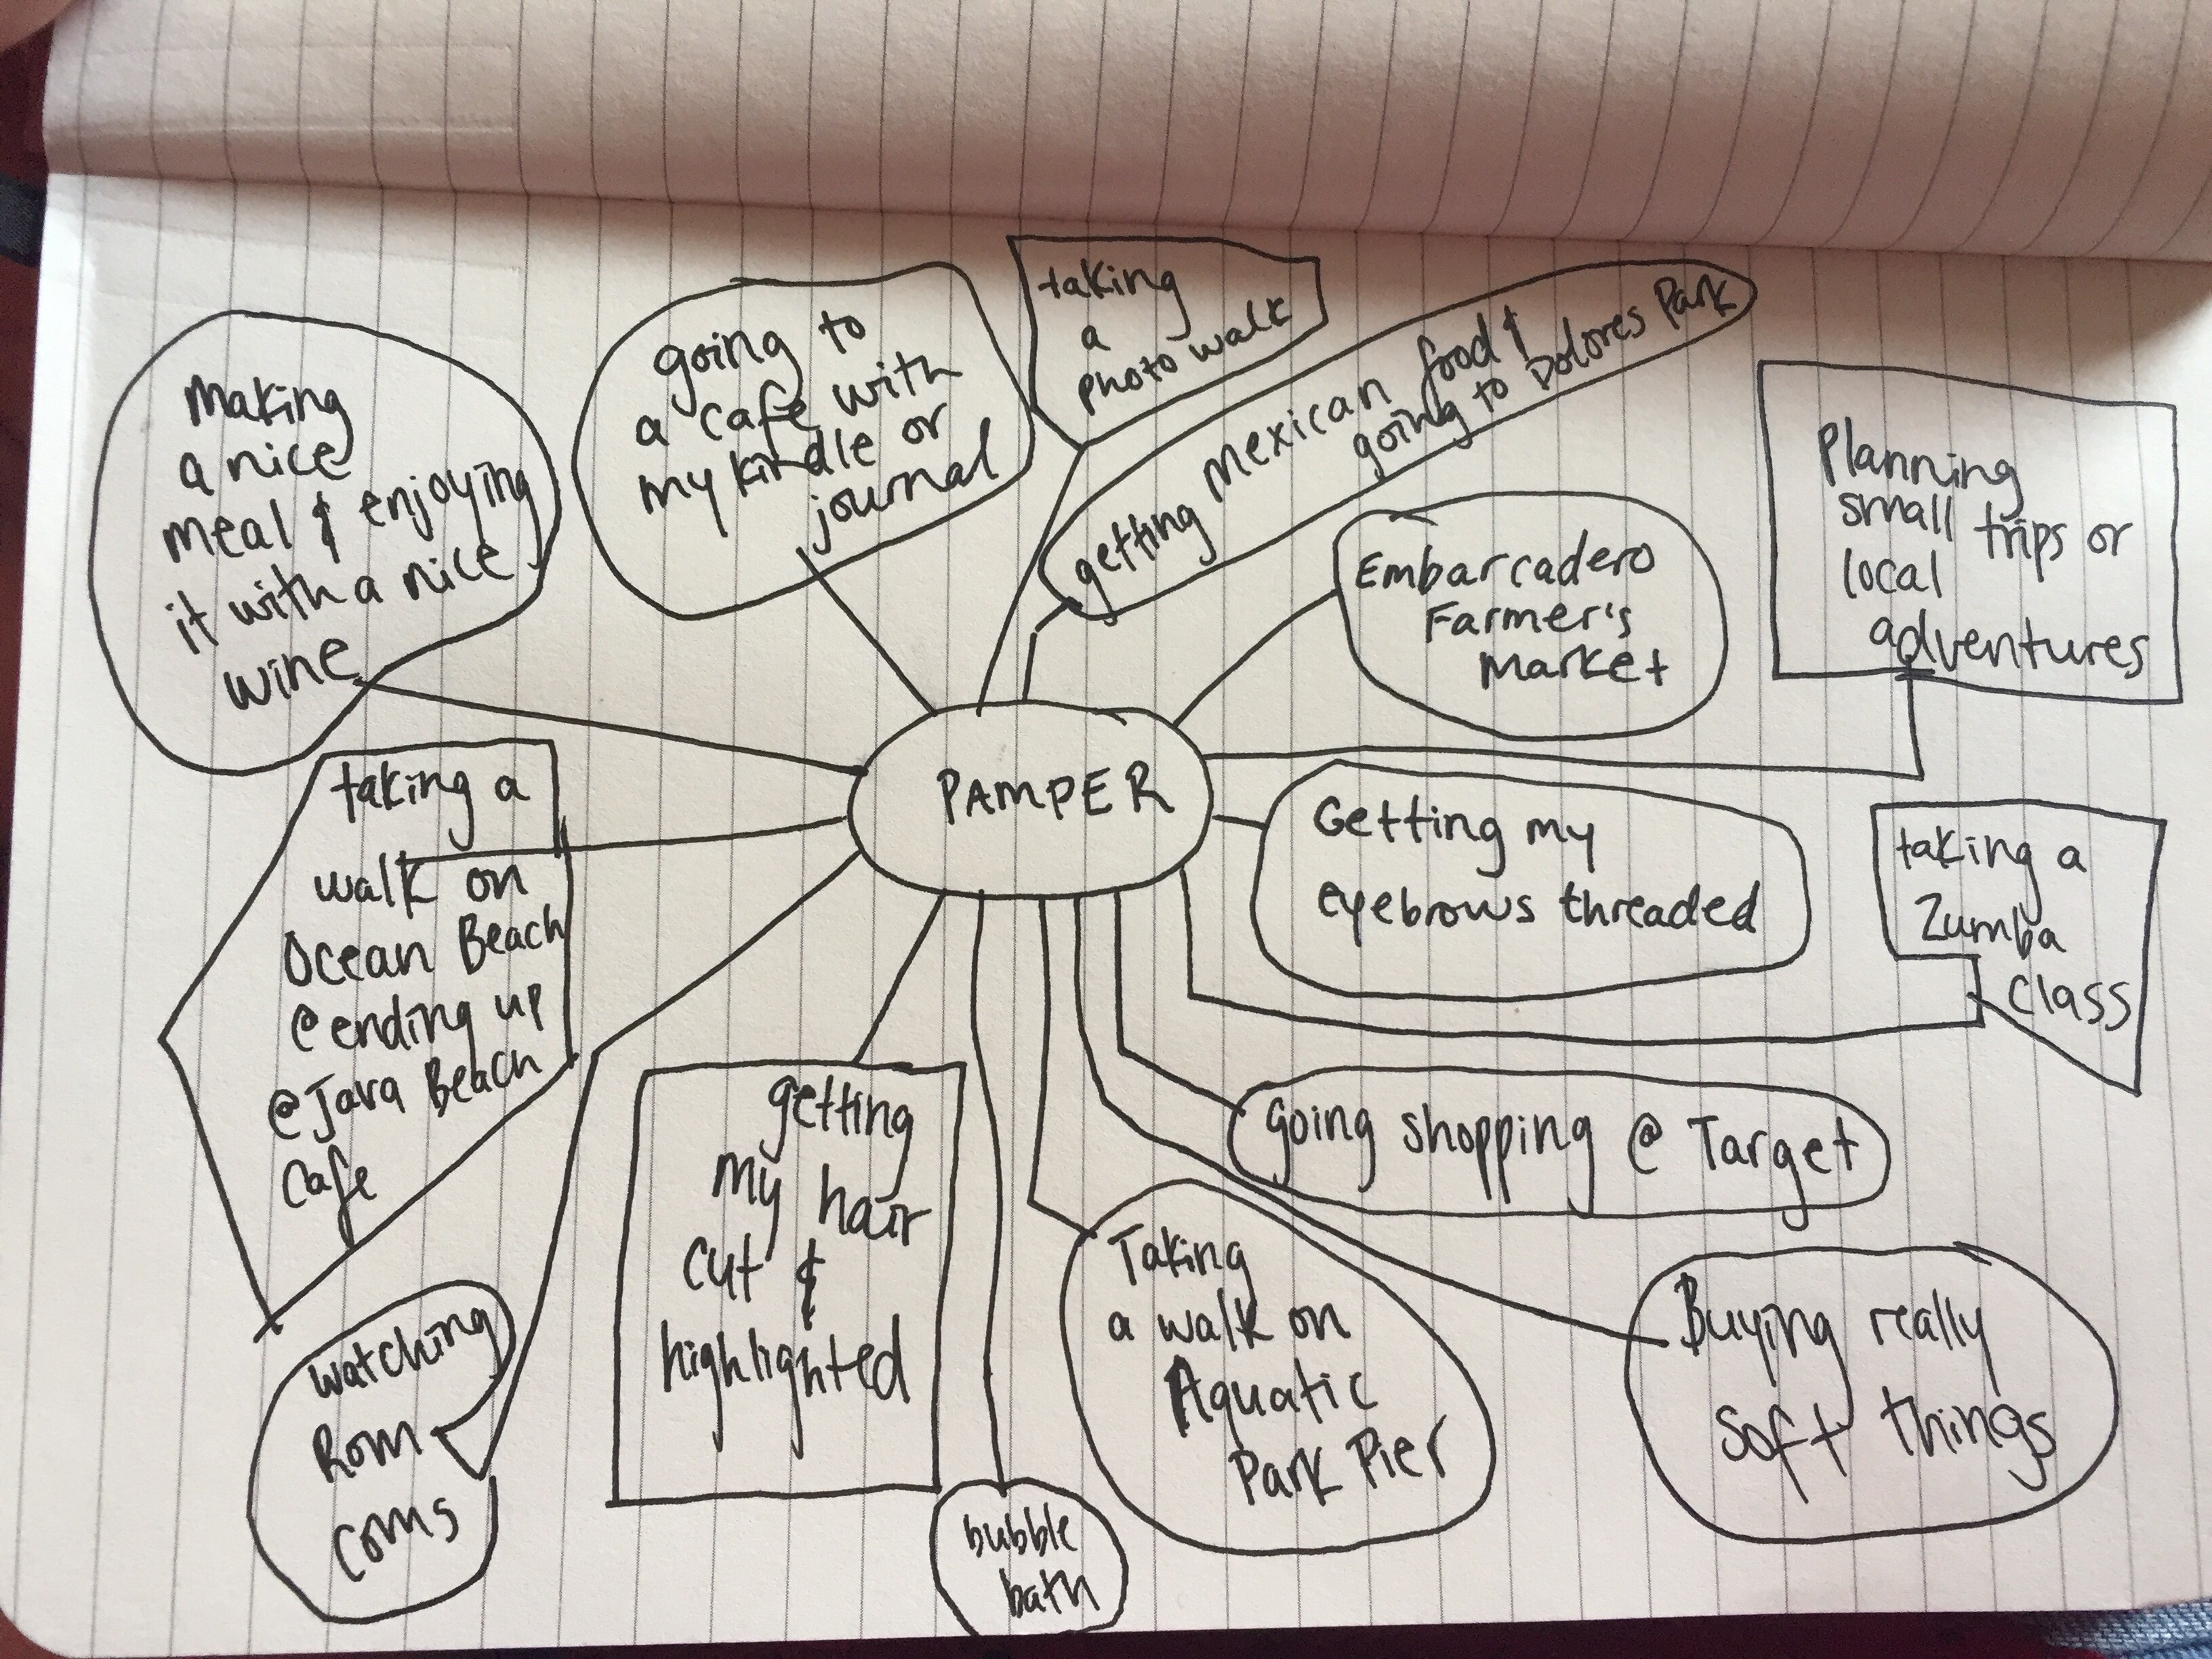 making
a nice
meal & enjoying
it with a nice
wine
going to
a cafe with
my kindle or
journal
taking
a
photo walk
getting mexican food &
going to Dolores Park
Embarcadero
Farmer's
Market
Planning
small trips or
local
adventures
PAMPER
Getting my
eyebrows threaded
taking a
Zumba
Class
going shopping @ Target
Buying really
soft things
Taking
a walk on
Aquatic
Park Pier
bubble
bath
getting
my hair
cut &
highlighted
watching
Rom
coms
taking a
walk on
Ocean Beach
@ ending up
@ Java Beach
Cafe